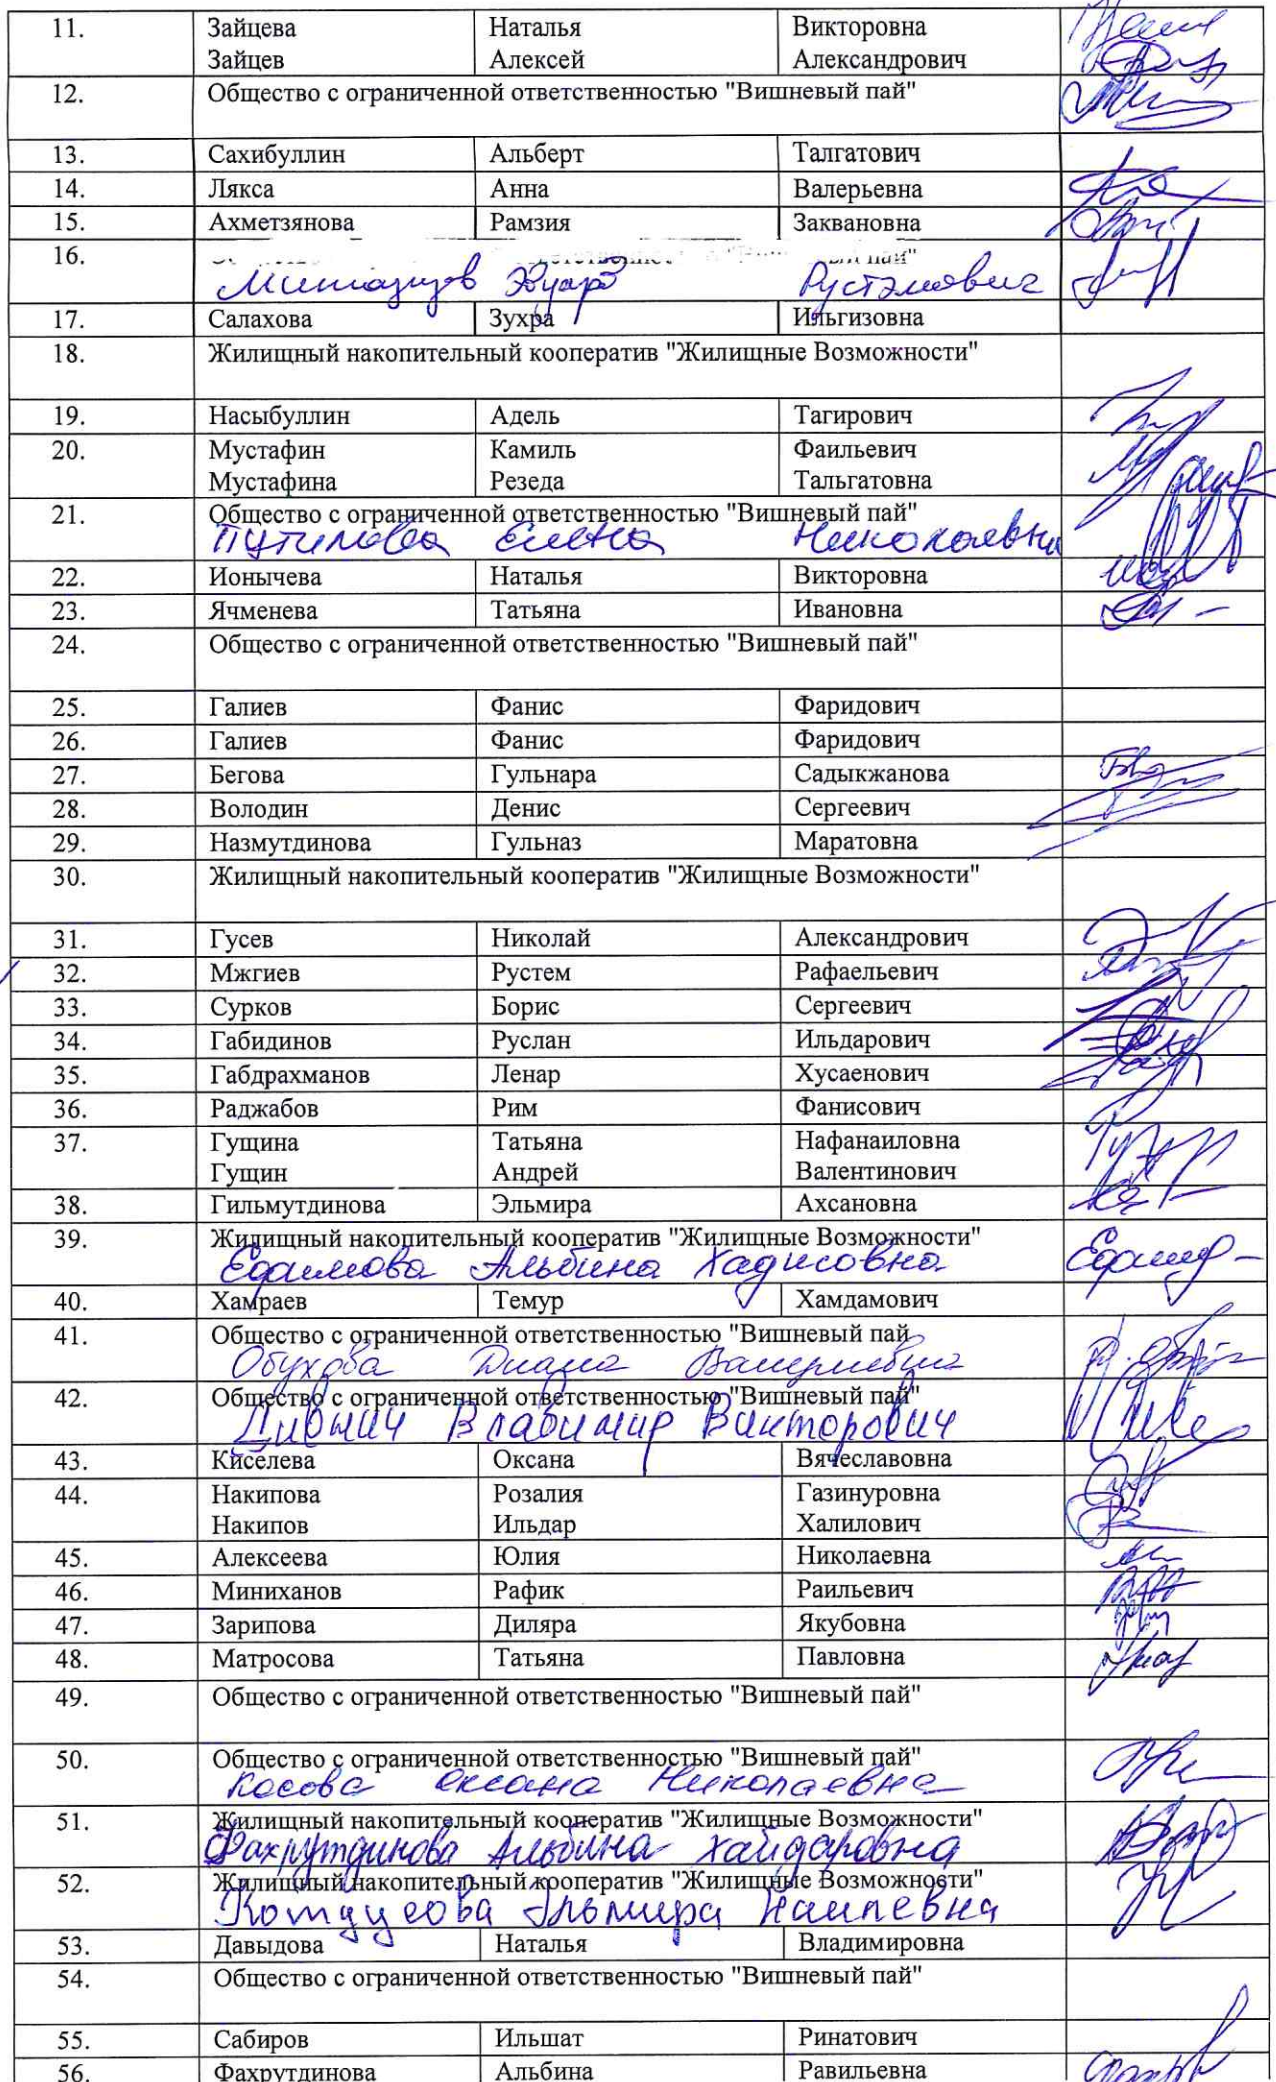 11. Зайцева Наталья Викторовна
Зайцев Алексей Александрович
12. Общество с ограниченной ответственностью "Вишневый пай"
13. Сахибуллин Альберт Талгатович
14. Лякса Анна Валерьевна
15. Ахметзянова Рамзия Заквановна
16.
Рустэмович
17. Салахова Зухра Ильгизовна
18. Жилищный накопительный кооператив "Жилищные Возможности"
19. Насыбуллин Адель Тагирович
20. Мустафин Камиль Фаильевич
Мустафина Резеда Тальгатовна
21. Общество с ограниченной ответственностью "Вишневый пай"
Путилова Елена Николаевна
22. Ионычева Наталья Викторовна
23. Ячменева Татьяна Ивановна
24. Общество с ограниченной ответственностью "Вишневый пай"
25. Галиев Фанис Фаридович
26. Галиев Фанис Фаридович
27. Бегова Гульнара Садыкжанова
28. Володин Денис Сергеевич
29. Назмутдинова Гульназ Маратовна
30. Жилищный накопительный кооператив "Жилищные Возможности"
31. Гусев Николай Александрович
32. Мжгиев Рустем Рафаельевич
33. Сурков Борис Сергеевич
34. Габидинов Руслан Ильдарович
35. Габдрахманов Ленар Хусаенович
36. Раджабов Рим Фанисович
37. Гущина Татьяна Нафанаиловна
Гущин Андрей Валентинович
38. Гильмутдинова Эльмира Ахсановна
39. Жилищный накопительный кооператив "Жилищные Возможности"
Альбина Хадисовна
40. Хамраев Темур Хамдамович
41. Общество с ограниченной ответственностью "Вишневый пай
Обухова Диана Валериевна
42. Общество с ограниченной ответственностью "Вишневый пай"
Владимир Викторович
43. Киселева Оксана Вячеславовна
44. Накипова Розалия Газинуровна
Накипов Ильдар Халилович
45. Алексеева Юлия Николаевна
46. Миниханов Рафик Раильевич
47. Зарипова Диляра Якубовна
48. Матросова Татьяна Павловна
49. Общество с ограниченной ответственностью "Вишневый пай"
50. Общество с ограниченной ответственностью "Вишневый пай"
Косова Оксана Николаевна
51. Жилищный накопительный кооператив "Жилищные Возможности"
Фахрутдинова Альбина Хайдаровна
52. Жилищный накопительный кооператив "Жилищные Возможности"
Эльмира Наилевна
53. Давыдова Наталья Владимировна
54. Общество с ограниченной ответственностью "Вишневый пай"
55. Сабиров Ильшат Ринатович
56. Фахрутдинова Альбина Равильевна